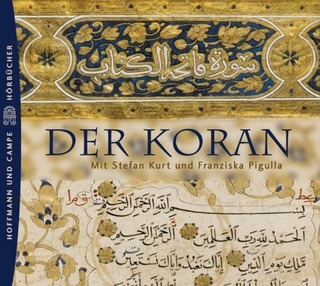 سورة فاتحة الكتاب
DER KORAN
Mit Stefan Kurt und Franziska Pigulla
بسم الله الرحمن الرحيم
الحمد لله رب العالمين الرحمن الرحيم
ملك يوم الدين إياك نعبد وإياك نستعين
HOFFMANN UND CAMPE HÖRBÜCHER